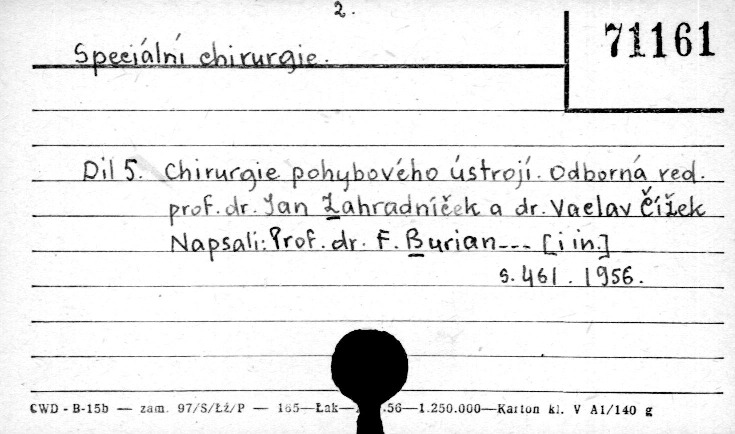 2.
71161
Speciální chirurgie.
Díl 5. Chirurgie pohybového ústrojí. Odborná red.
prof. dr. Jan Zahradníček a dr. Vaclav Čížek
Napsali: Prof. dr. F. Burian--- [i in.]
s. 461. 1956.
CWD - B-15b — zam. 97/S/Łż/P — 165—Łak— .56—1.250.000—Karton kl. V A1/140 g